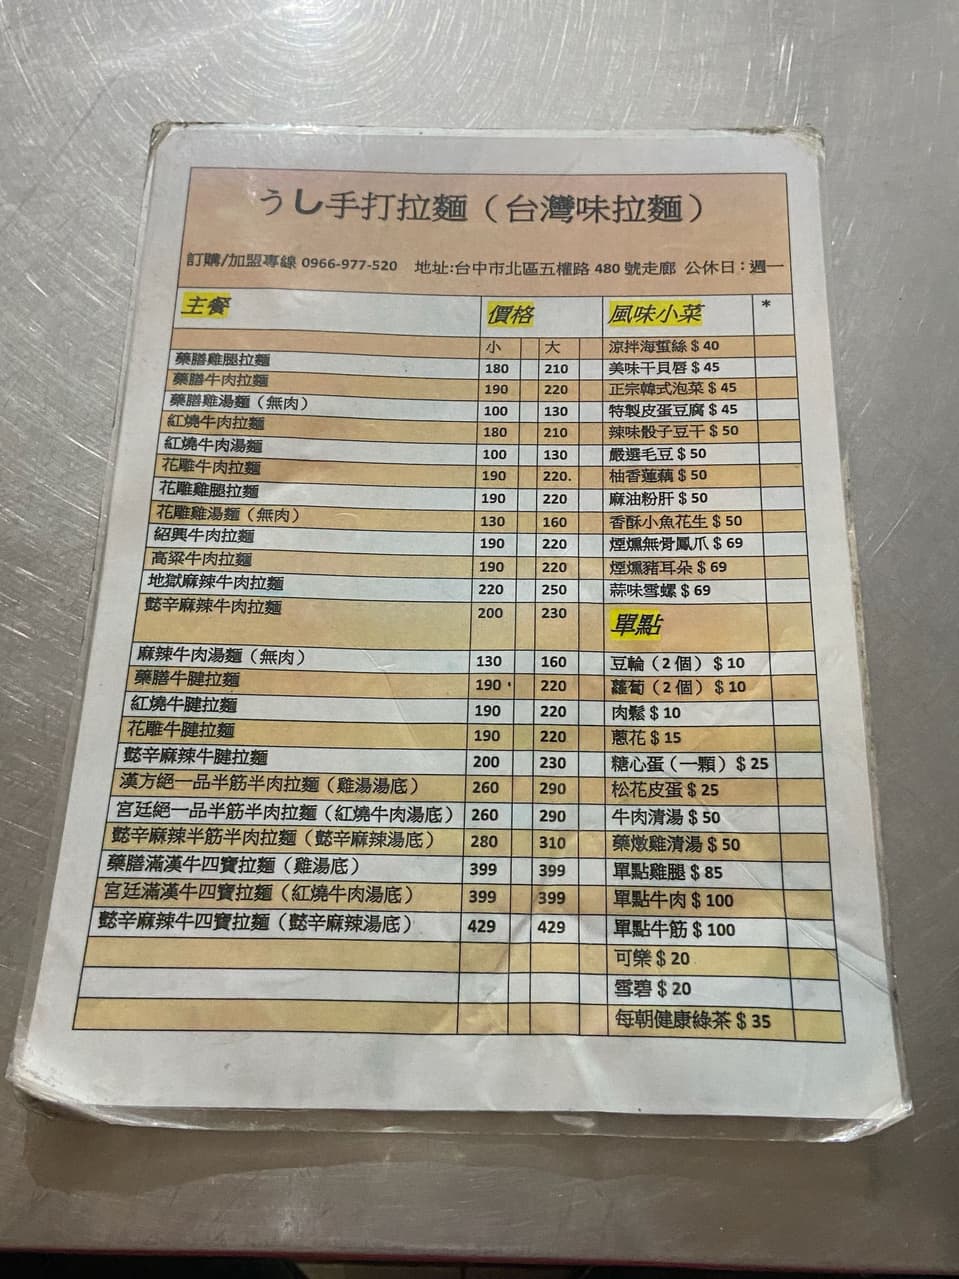 うし手打拉麵（台灣味拉麵）
訂購/加盟專線 0966-977-520 地址:台中市北區五權路 480 號走廊 公休日：週一
主餐 價格 風味小菜 *
小 大 涼拌海蜇絲 $ 40
藥膳雞腿拉麵 180 210 美味干貝唇 $ 45
藥膳牛肉拉麵 190 220 正宗韓式泡菜 $ 45
藥膳雞湯麵（無肉） 100 130 特製皮蛋豆腐 $ 45
紅燒牛肉拉麵 180 210 辣味骰子豆干 $ 50
紅燒牛肉湯麵 100 130 嚴選毛豆 $ 50
花雕牛肉拉麵 190 220. 柚香蓮藕 $ 50
花雕雞腿拉麵 190 220 麻油粉肝 $ 50
花雕雞湯麵（無肉） 130 160 香酥小魚花生 $ 50
紹興牛肉拉麵 190 220 煙燻無骨鳳爪 $ 69
高粱牛肉拉麵 190 220 煙燻豬耳朵 $ 69
地獄麻辣牛肉拉麵 220 250 蒜味雪螺 $ 69
懿辛麻辣牛肉拉麵 200 230 單點
麻辣牛肉湯麵（無肉） 130 160 豆輪（2 個） $ 10
藥膳牛腱拉麵 190 220 蘿蔔（2 個） $ 10
紅燒牛腱拉麵 190 220 肉鬆 $ 10
花雕牛腱拉麵 190 220 蔥花 $ 15
懿辛麻辣牛腱拉麵 200 230 糖心蛋（一顆） $ 25
漢方絕一品半筋半肉拉麵（雞湯湯底） 260 290 松花皮蛋 $ 25
宮廷絕一品半筋半肉拉麵（紅燒牛肉湯底） 260 290 牛肉清湯 $ 50
懿辛麻辣半筋半肉拉麵（懿辛麻辣湯底） 280 310 藥燉雞清湯 $ 50
藥膳滿漢牛四寶拉麵（雞湯底） 399 399 單點雞腿 $ 85
宮廷滿漢牛四寶拉麵（紅燒牛肉湯底） 399 399 單點牛肉 $ 100
懿辛麻辣牛四寶拉麵（懿辛麻辣湯底） 429 429 單點牛筋 $ 100
可樂 $ 20
雪碧 $ 20
每朝健康綠茶 $ 35